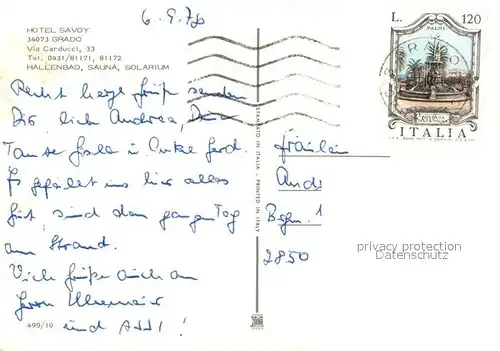 6.9.78
HOTEL SAVOY
34073 GRADO
Via Carducci, 33
Tel. 0431/81171, 81172
HALLENBAD, SAUNA, SOLARIUM
Recht herzl. Grüße senden
Dir lieb Andrea,
Tante in Onkel Gerd.
Es gefällt uns hier alles
gut, sind den ganzen Tag
am Strand.
Viele Grüße auch an
Herrn
und
499/10
STAMPATO IN ITALIA - PRINTED IN ITALY
L. 120
PALMI
ITALIA
Fräulein
Andr
Bgm. 1
2850
privacy protection
Datenschutz